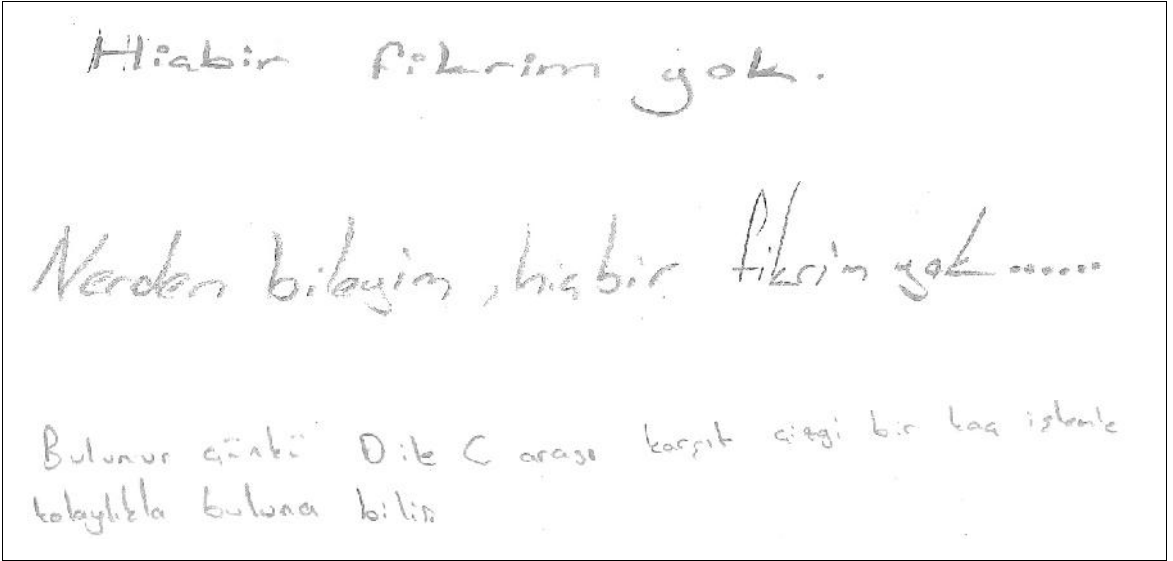 Hiçbir fikrim yok.
Nerden bileyim, hiçbir fikrim yok......
Bulunur çünkü D ile C arası karşıt çizgi bir kaç işlemle
kolaylıkla buluna bilir